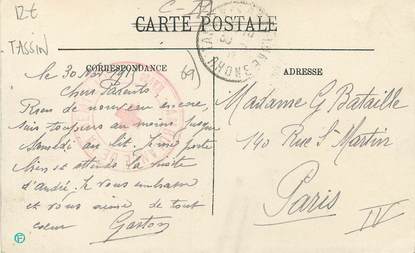 12€
C-A2
TASSIN
CARTE POSTALE
CORRESPONDANCE
69
ADRESSE
le 30 Nov 1915
Chers Parents
Rien de nouveau encore,
suis toujours au moins jusqu
Samedi au lit. Je me porte
bien et attends la visite
d'André. Je vous embrasse
et vous aime de tout
coeur Gaston
Madame G Bataille
140 Rue St Martin
Paris
IV